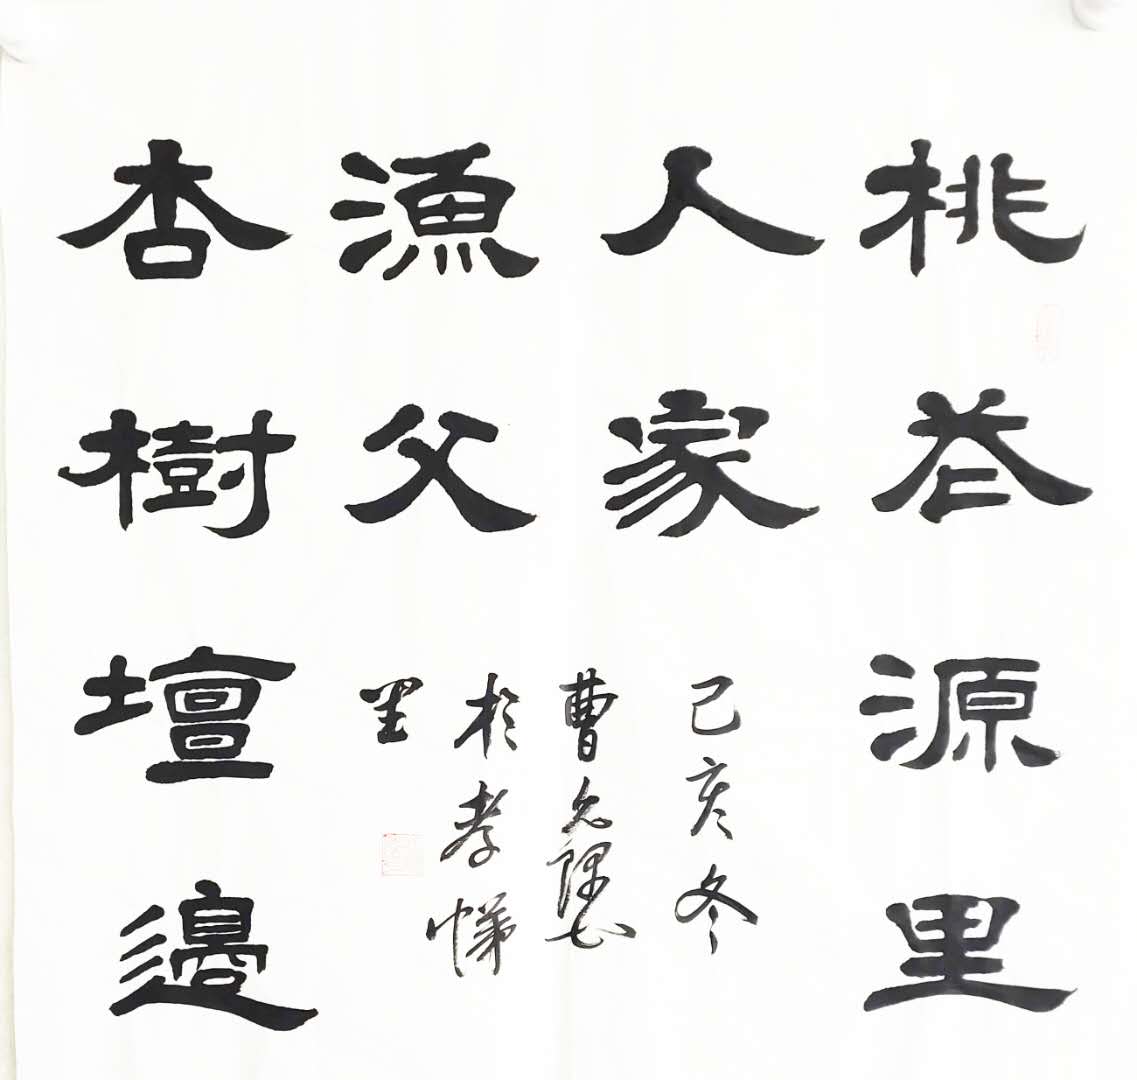 桃花源里
人家
漁父
杏樹壇邊
己亥冬
曹
於孝悌
里